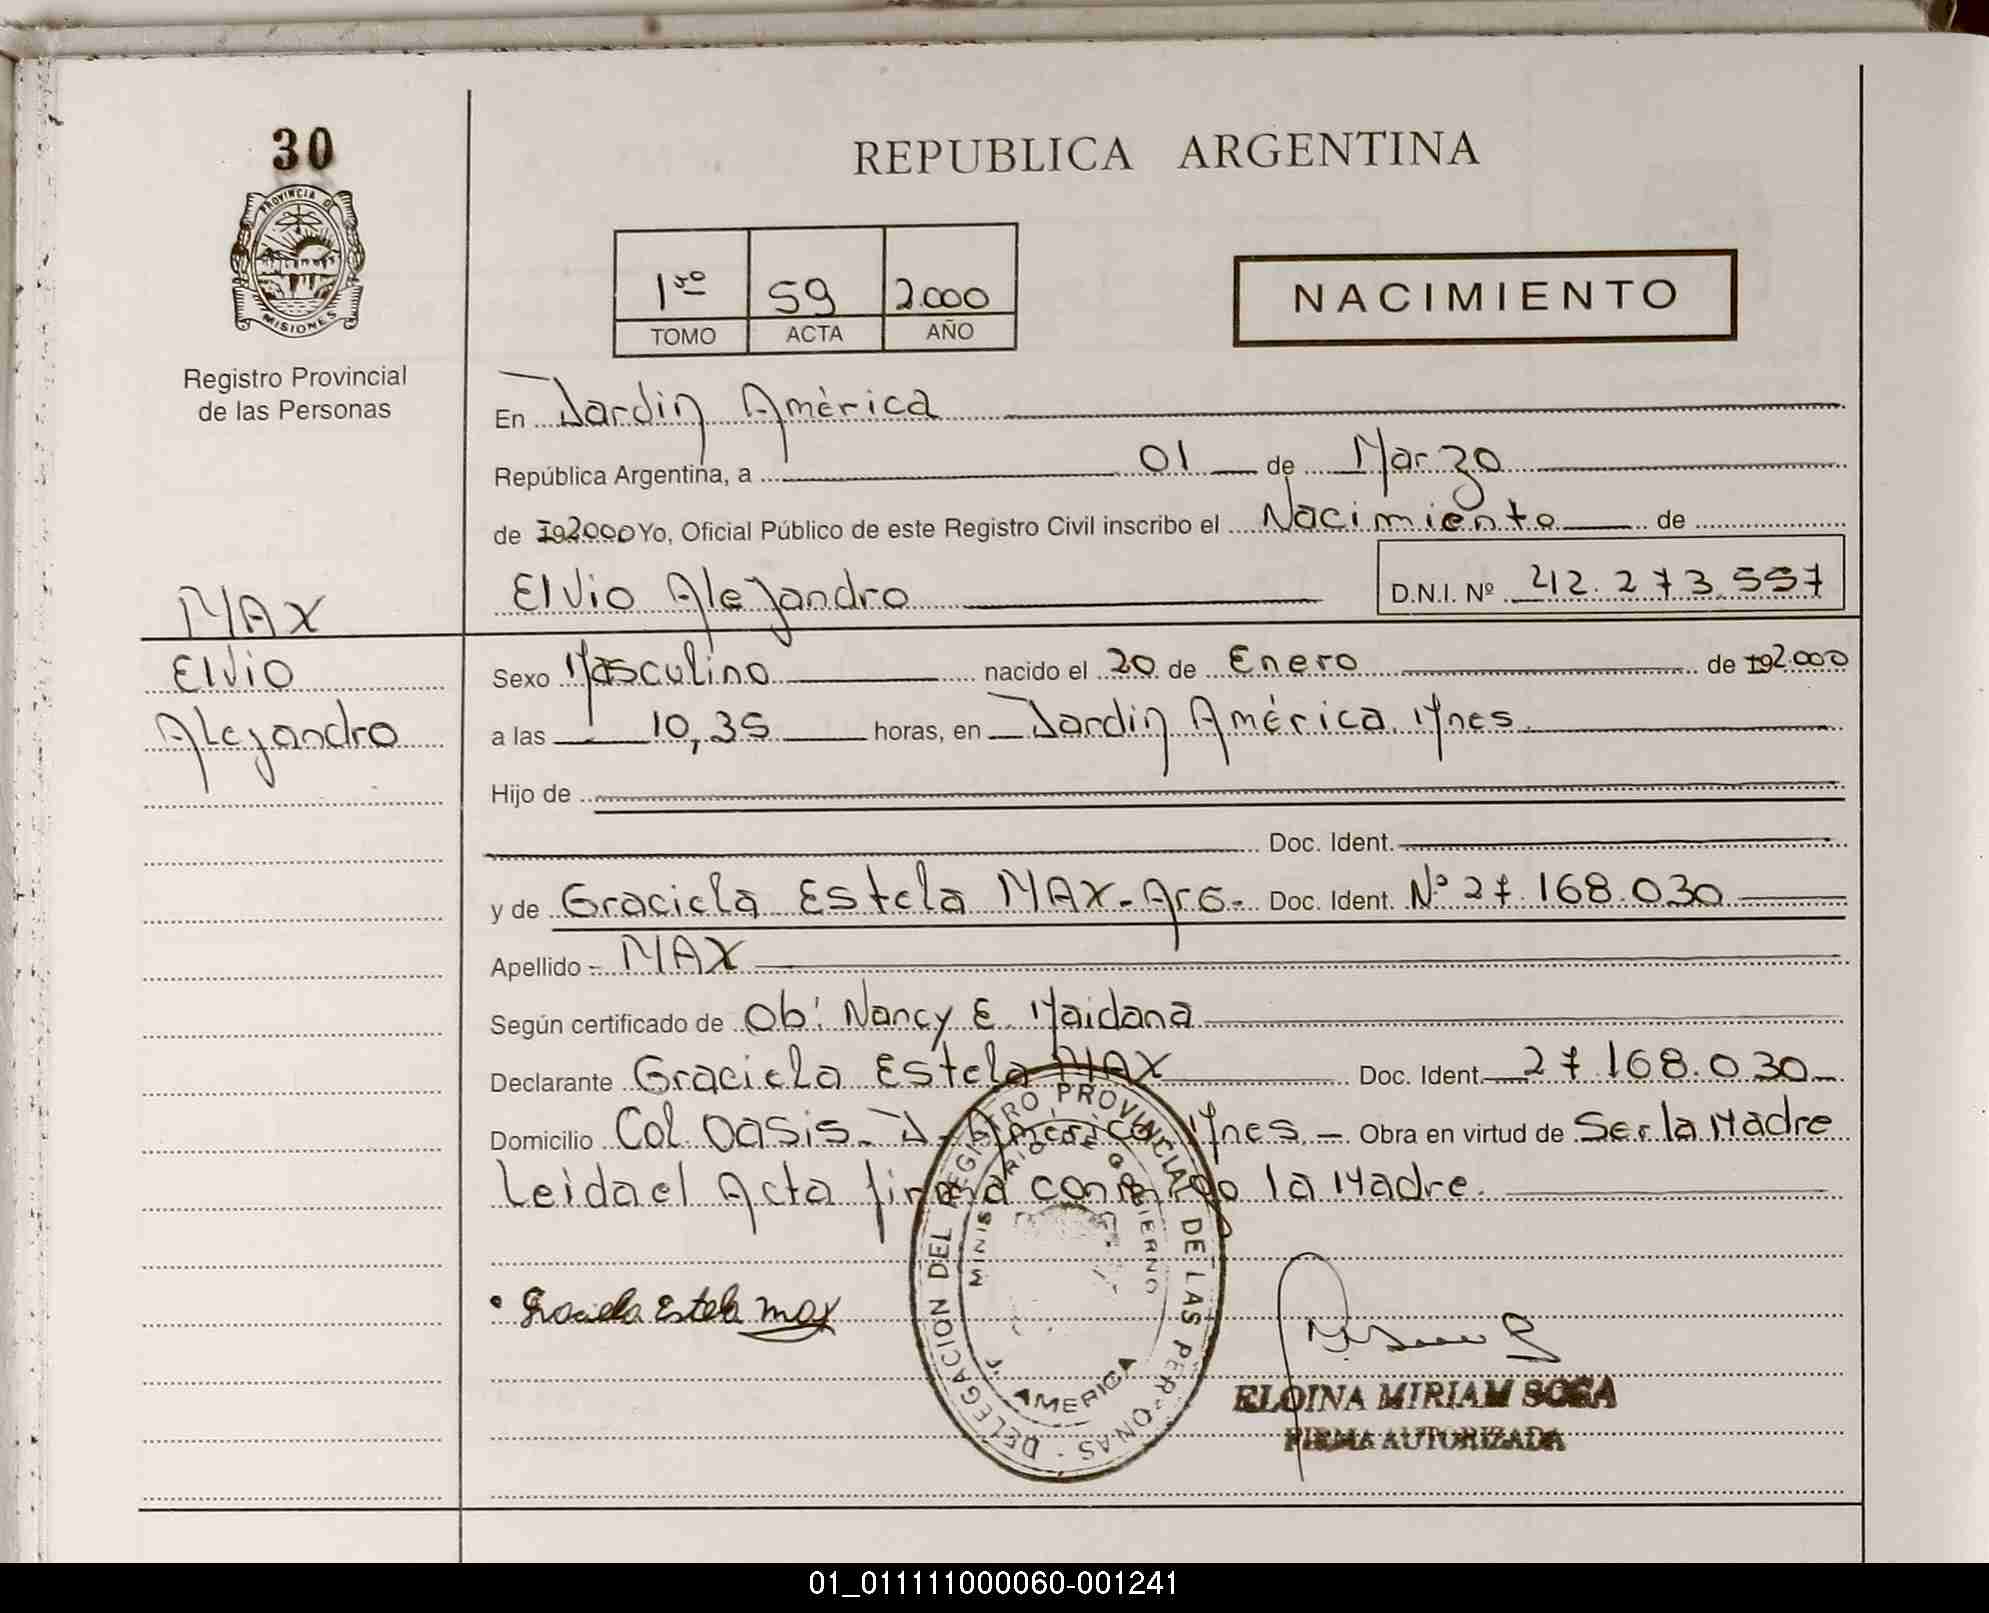 30
PROVINCIA D
MISIONES
Registro Provincial
de las Personas
REPUBLICA ARGENTINA
1ro 59 2.000
TOMO ACTA AÑO
NACIMIENTO
En Jardin América
República Argentina, a 01 de Marzo
de 192000 Yo, Oficial Público de este Registro Civil inscribo el Nacimiento de
Elvio Alejandro D.N.I. Nº 42.273.557
MAX
Elvio
Alejandro
Sexo Masculino nacido el 20 de Enero de 192.000
a las 10,35 horas, en Jardin América. Mnes.
Hijo de
Doc. Ident.
y de Graciela Estela MAX - Arg - Doc. Ident. Nº 27.168.030
Apellido MAX
Según certificado de Ob: Nancy E. Maidana
Declarante Graciela Estela MAX Doc. Ident. 27.168.030
Domicilio Col. Oasis - J. América Mnes. - Obra en virtud de Ser la Madre
Leida el Acta firma conmigo la Madre.
Graciela Estela max
DELEGACION DEL REGISTRO PROVINCIAL DE LAS PERSONAS
MINISTERIO DE GOBIERNO
J. AMERICA
ELOINA MIRIAM SOSA
FIRMA AUTORIZADA
01_011111000060-001241